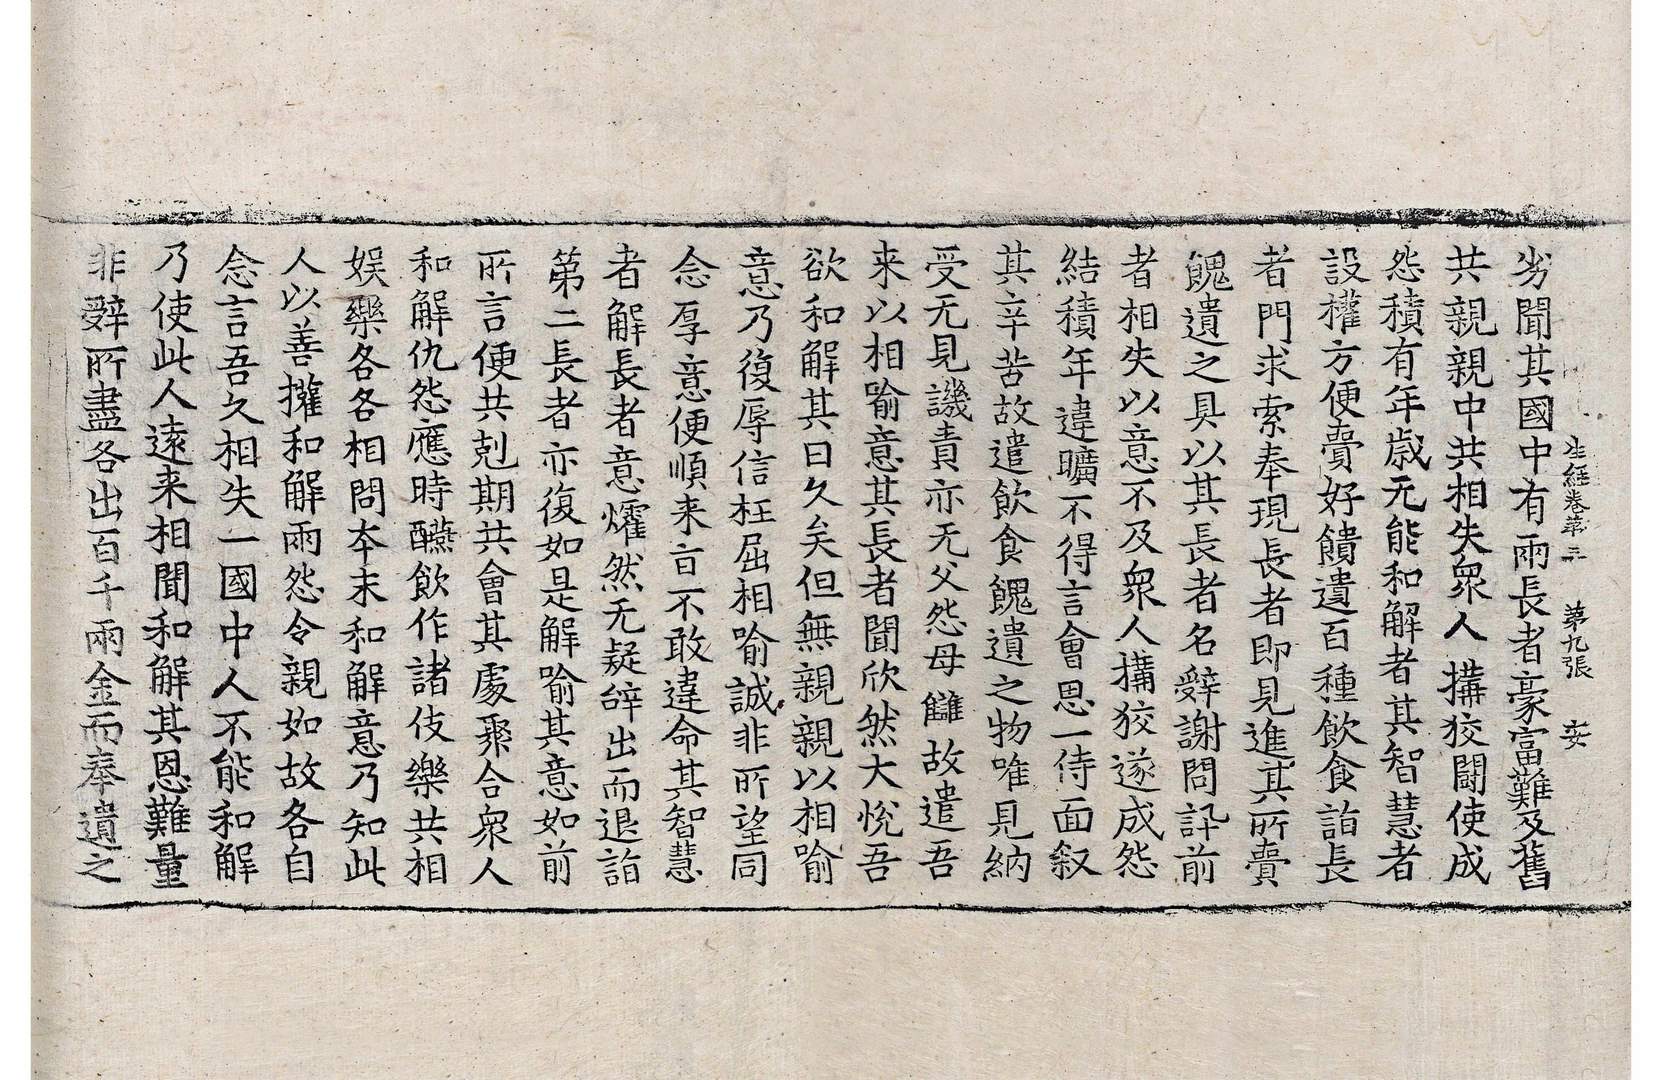 生經卷第三 第九張 安
劣聞其國中有兩長者豪富難及舊
共親親中共相失衆人搆狡鬪使成
怨積有年歲无能和解者其智慧者
設權方便賷好饋遺百種飲食詣長
者門求索奉現長者即見進其所賷
餽遺之具以其長者名辤謝問訊前
者相失以意不及衆人搆狡遂成怨
結積年違曠不得言會思一侍面叙
其辛苦故遣飲食餽遺之物唯見納
受无見譏責亦无父怨母讎故遣吾
来以相喻意其長者聞欣然大悅吾
欲和解其日久矣但無親親以相喻
意乃復辱信枉屈相喻誠非所望同
念厚意便順来言不敢違命其智慧
者解長者意㸌然无疑辝出而退詣
第二長者亦復如是解喻其意如前
所言便共剋期共會其處聚合衆人
和解仇怨應時醼飲作諸伎樂共相
娛樂各各相問本末和解意乃知此
人以善權和解兩怨令親如故各自
念言吾久相失一國中人不能和解
乃使此人遠来相聞和解其恩難量
非辤所盡各出百千兩金而奉遺之